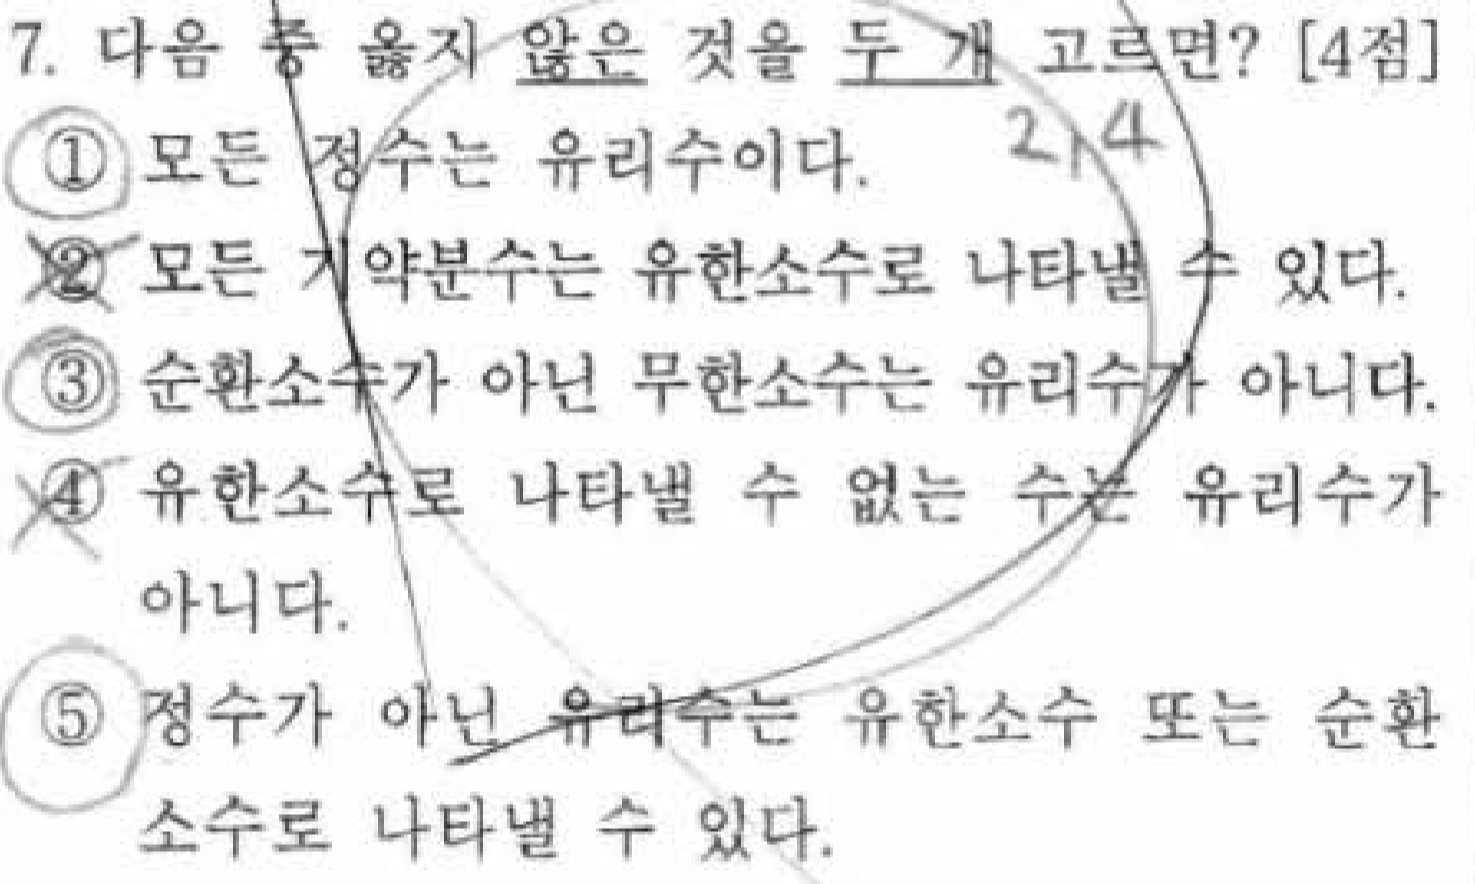 7. 다음 중 옳지 않은 것을 두 개 고르면? [4점]
2, 4
① 모든 정수는 유리수이다.
② 모든 기약분수는 유한소수로 나타낼 수 있다.
③ 순환소수가 아닌 무한소수는 유리수가 아니다.
④ 유한소수로 나타낼 수 없는 수는 유리수가
아니다.
⑤ 정수가 아닌 유리수는 유한소수 또는 순환
소수로 나타낼 수 있다.